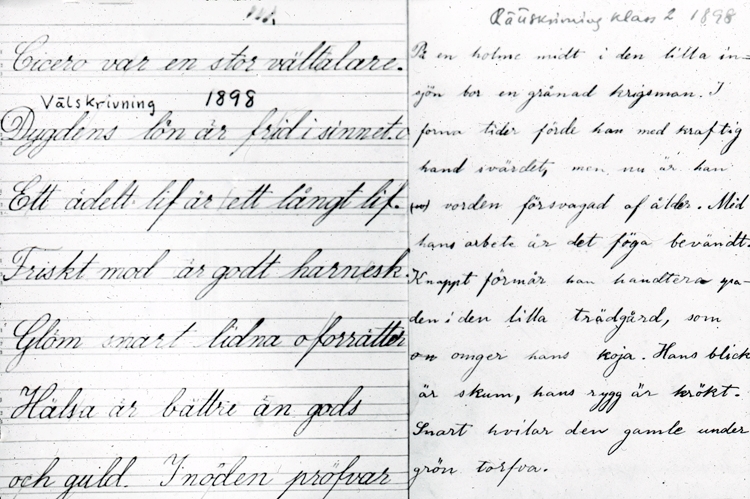 Cicero var en stor vältalare.
Välskrivning 1898
Dygdens lön är frid i sinnet.
Ett ädelt lif är ett långt lif.
Friskt mod är godt harnesk.
Glöm snart lidna oförrätter
Hälsa är bättre än gods
och guld. I nöden pröfvar
Rättskrivning klass 2 1898
På en holme midt i den lilla in=
sjön bor en grånad krigsman. I
forna tider förde han med kraftig
hand svärdet, men nu är han
vorden försvagad af ålder. Med
hans arbete är det föga bevändt.
Knappt förmår han handtera spa-
den i den lilla trädgård, som
omger hans koja. Hans blick
är skum, hans rygg är krökt.
Snart hvilar den gamle under
grön torfva.